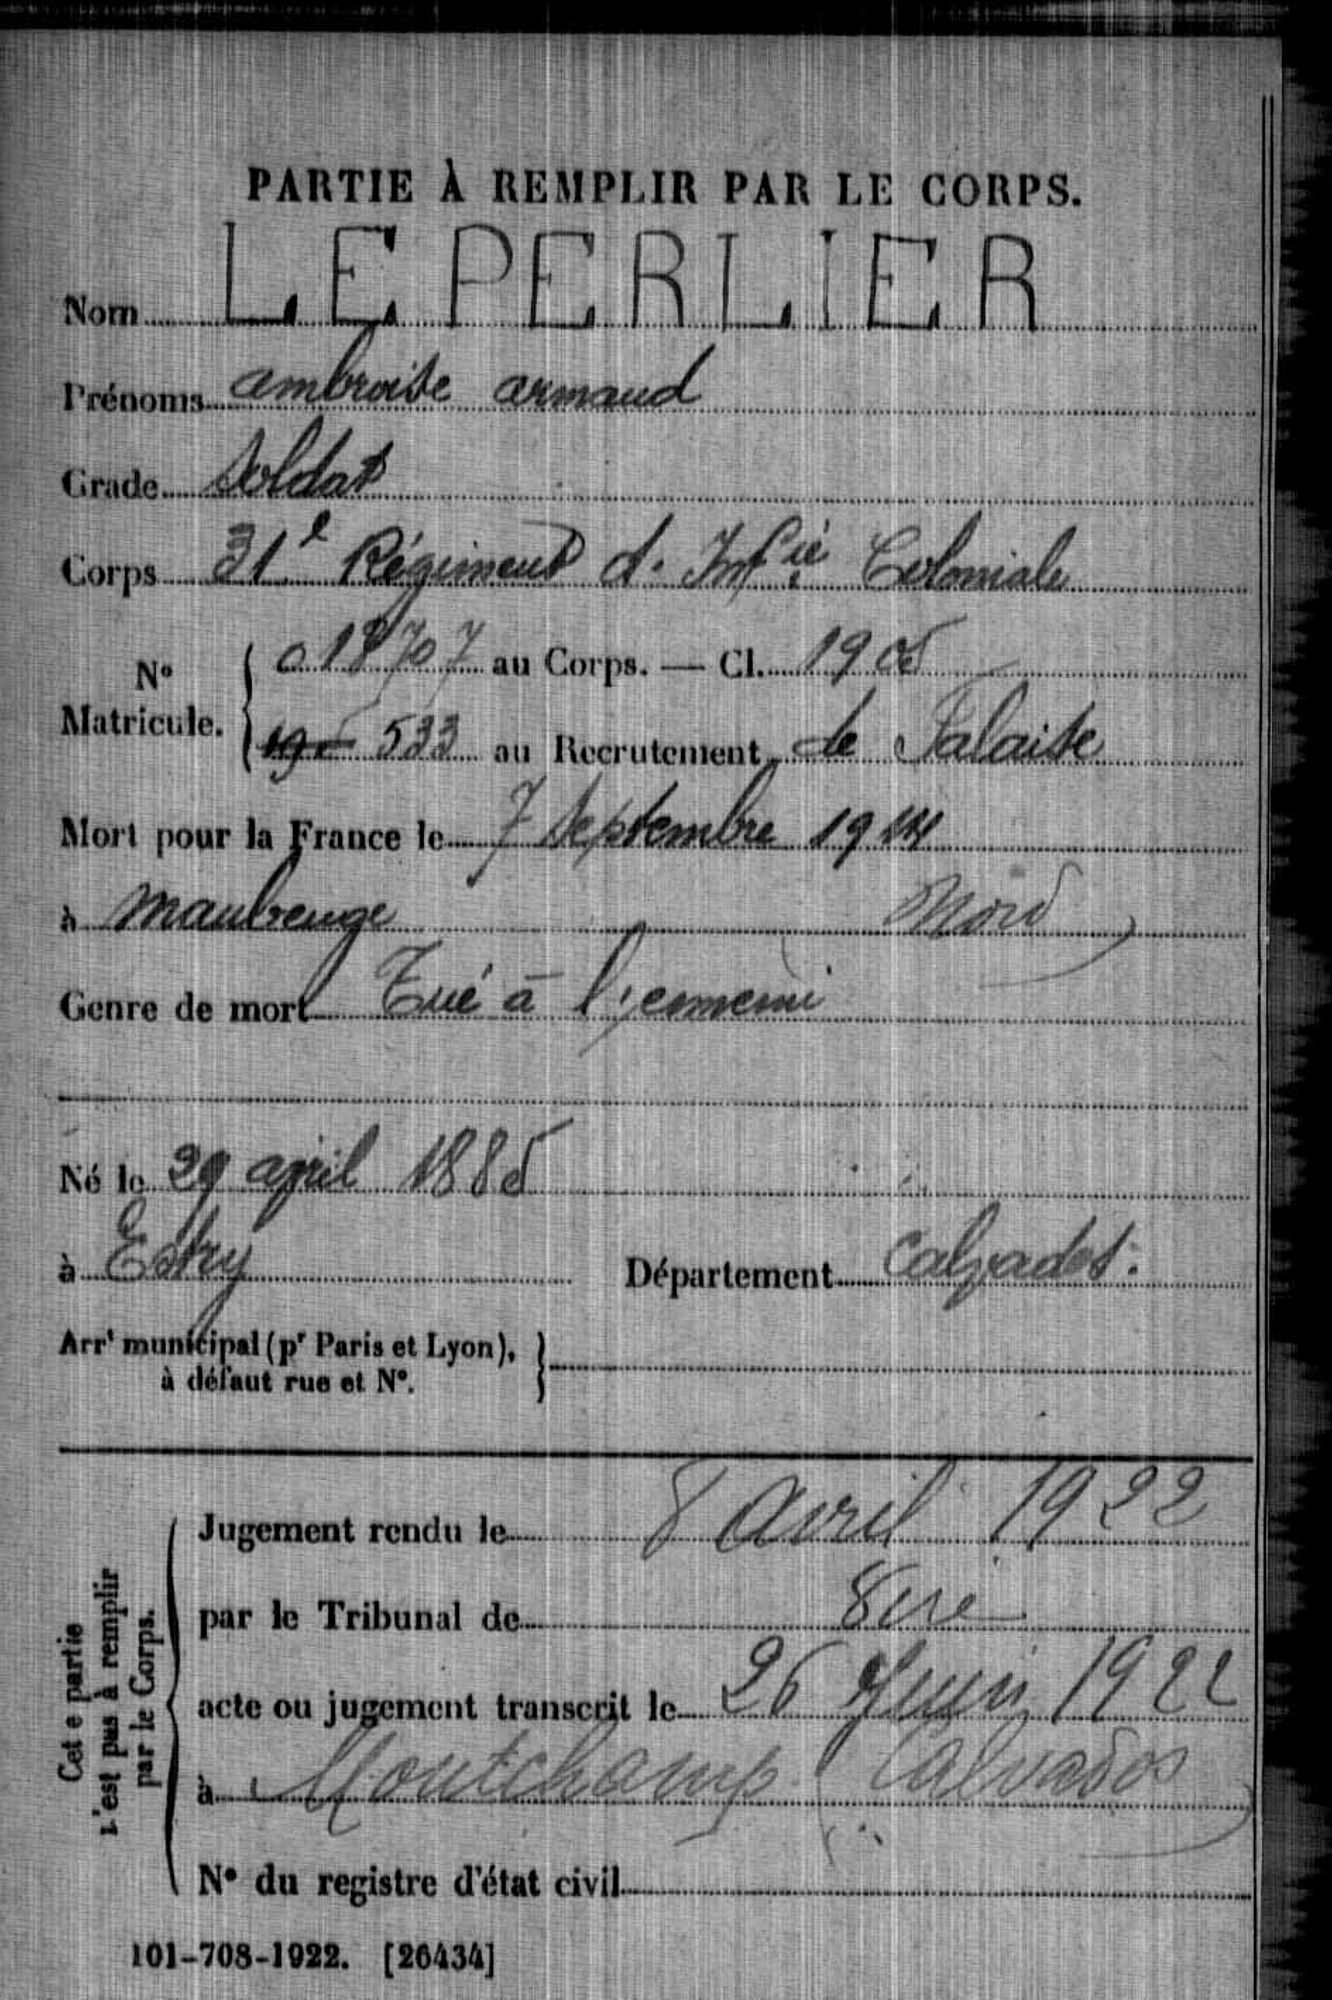 PARTIE À REMPLIR PAR LE CORPS.
Nom LEPERLIER
Prénoms ambroise armand
Grade Soldat
Corps 31e Régiment d. Inf ie Coloniale
No Matricule. { 018707 au Corps. — Cl. 1905
533 au Recrutement de Falaise
Mort pour la France le 7 Septembre 1914
à maubeuge (Nord)
Genre de mort Tué à l'ennemi
Né le 29 april 1885
à Estry Département Calvados.
Arrt municipal (pr Paris et Lyon), }
à défaut rue et No.
Cette partie
n'est pas à remplir
par le Corps.
Jugement rendu le 8 Avril 1922
par le Tribunal de Vire
acte ou jugement transcrit le 26 Juin 1922
à Montchamp (Calvados)
No du registre d'état civil
101-708-1922. [26434]